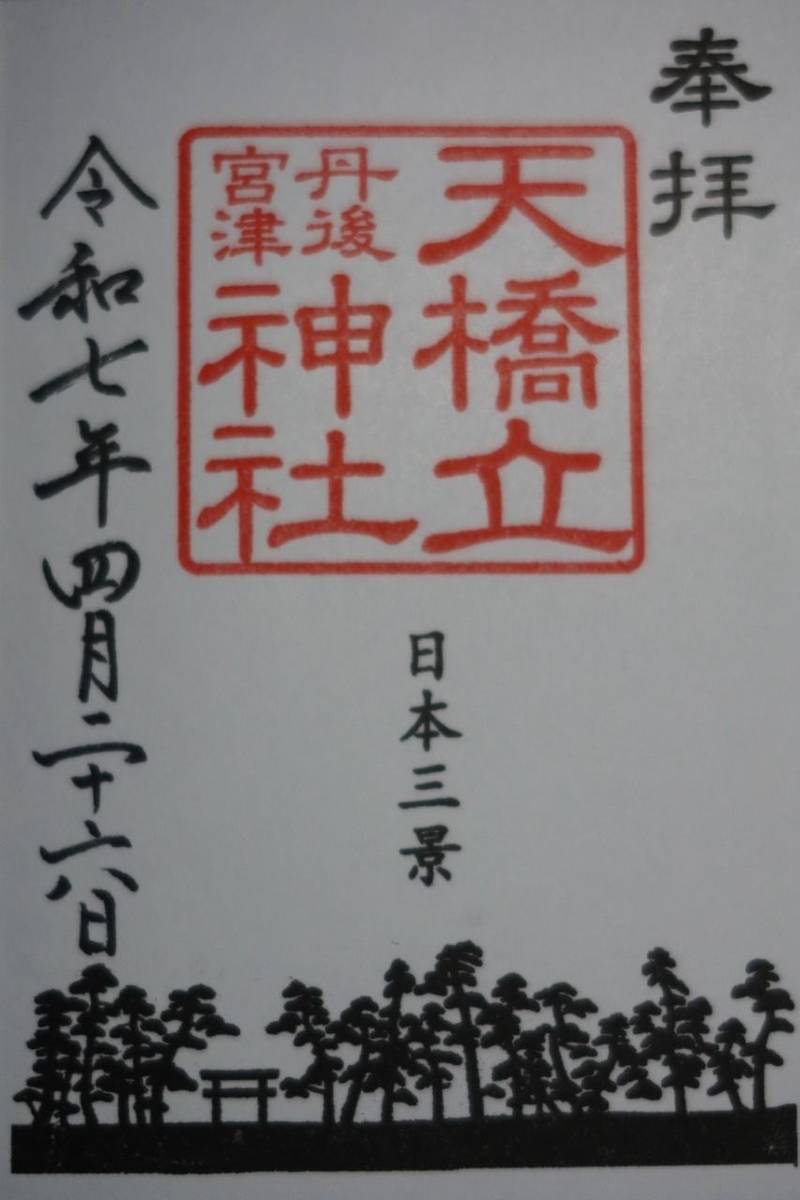 奉拝
天橋立
丹後
宮津
神社
日本三景
令和七年四月二十六日